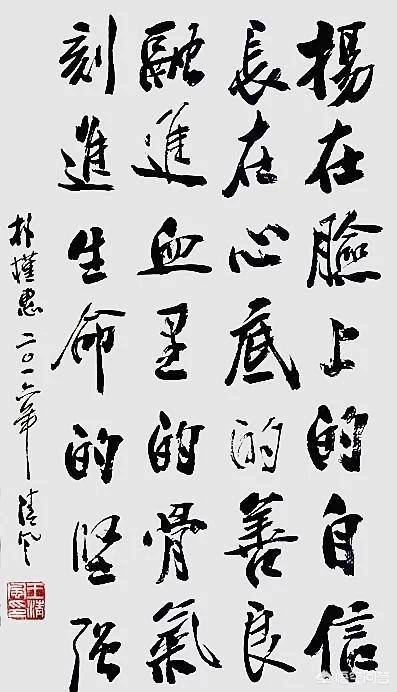 揚在臉上的自信
長在心底的善良
融進血里的骨氣
刻進生命的堅強
朴槿惠二〇一六年清风
王清風印
悟空问答